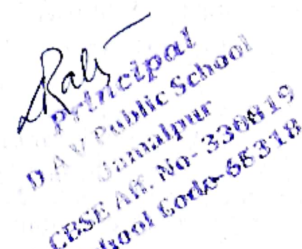 Principal
D.A.V Public School
Jamalpur
CBSE Aff. No- 330819
School Code-66318